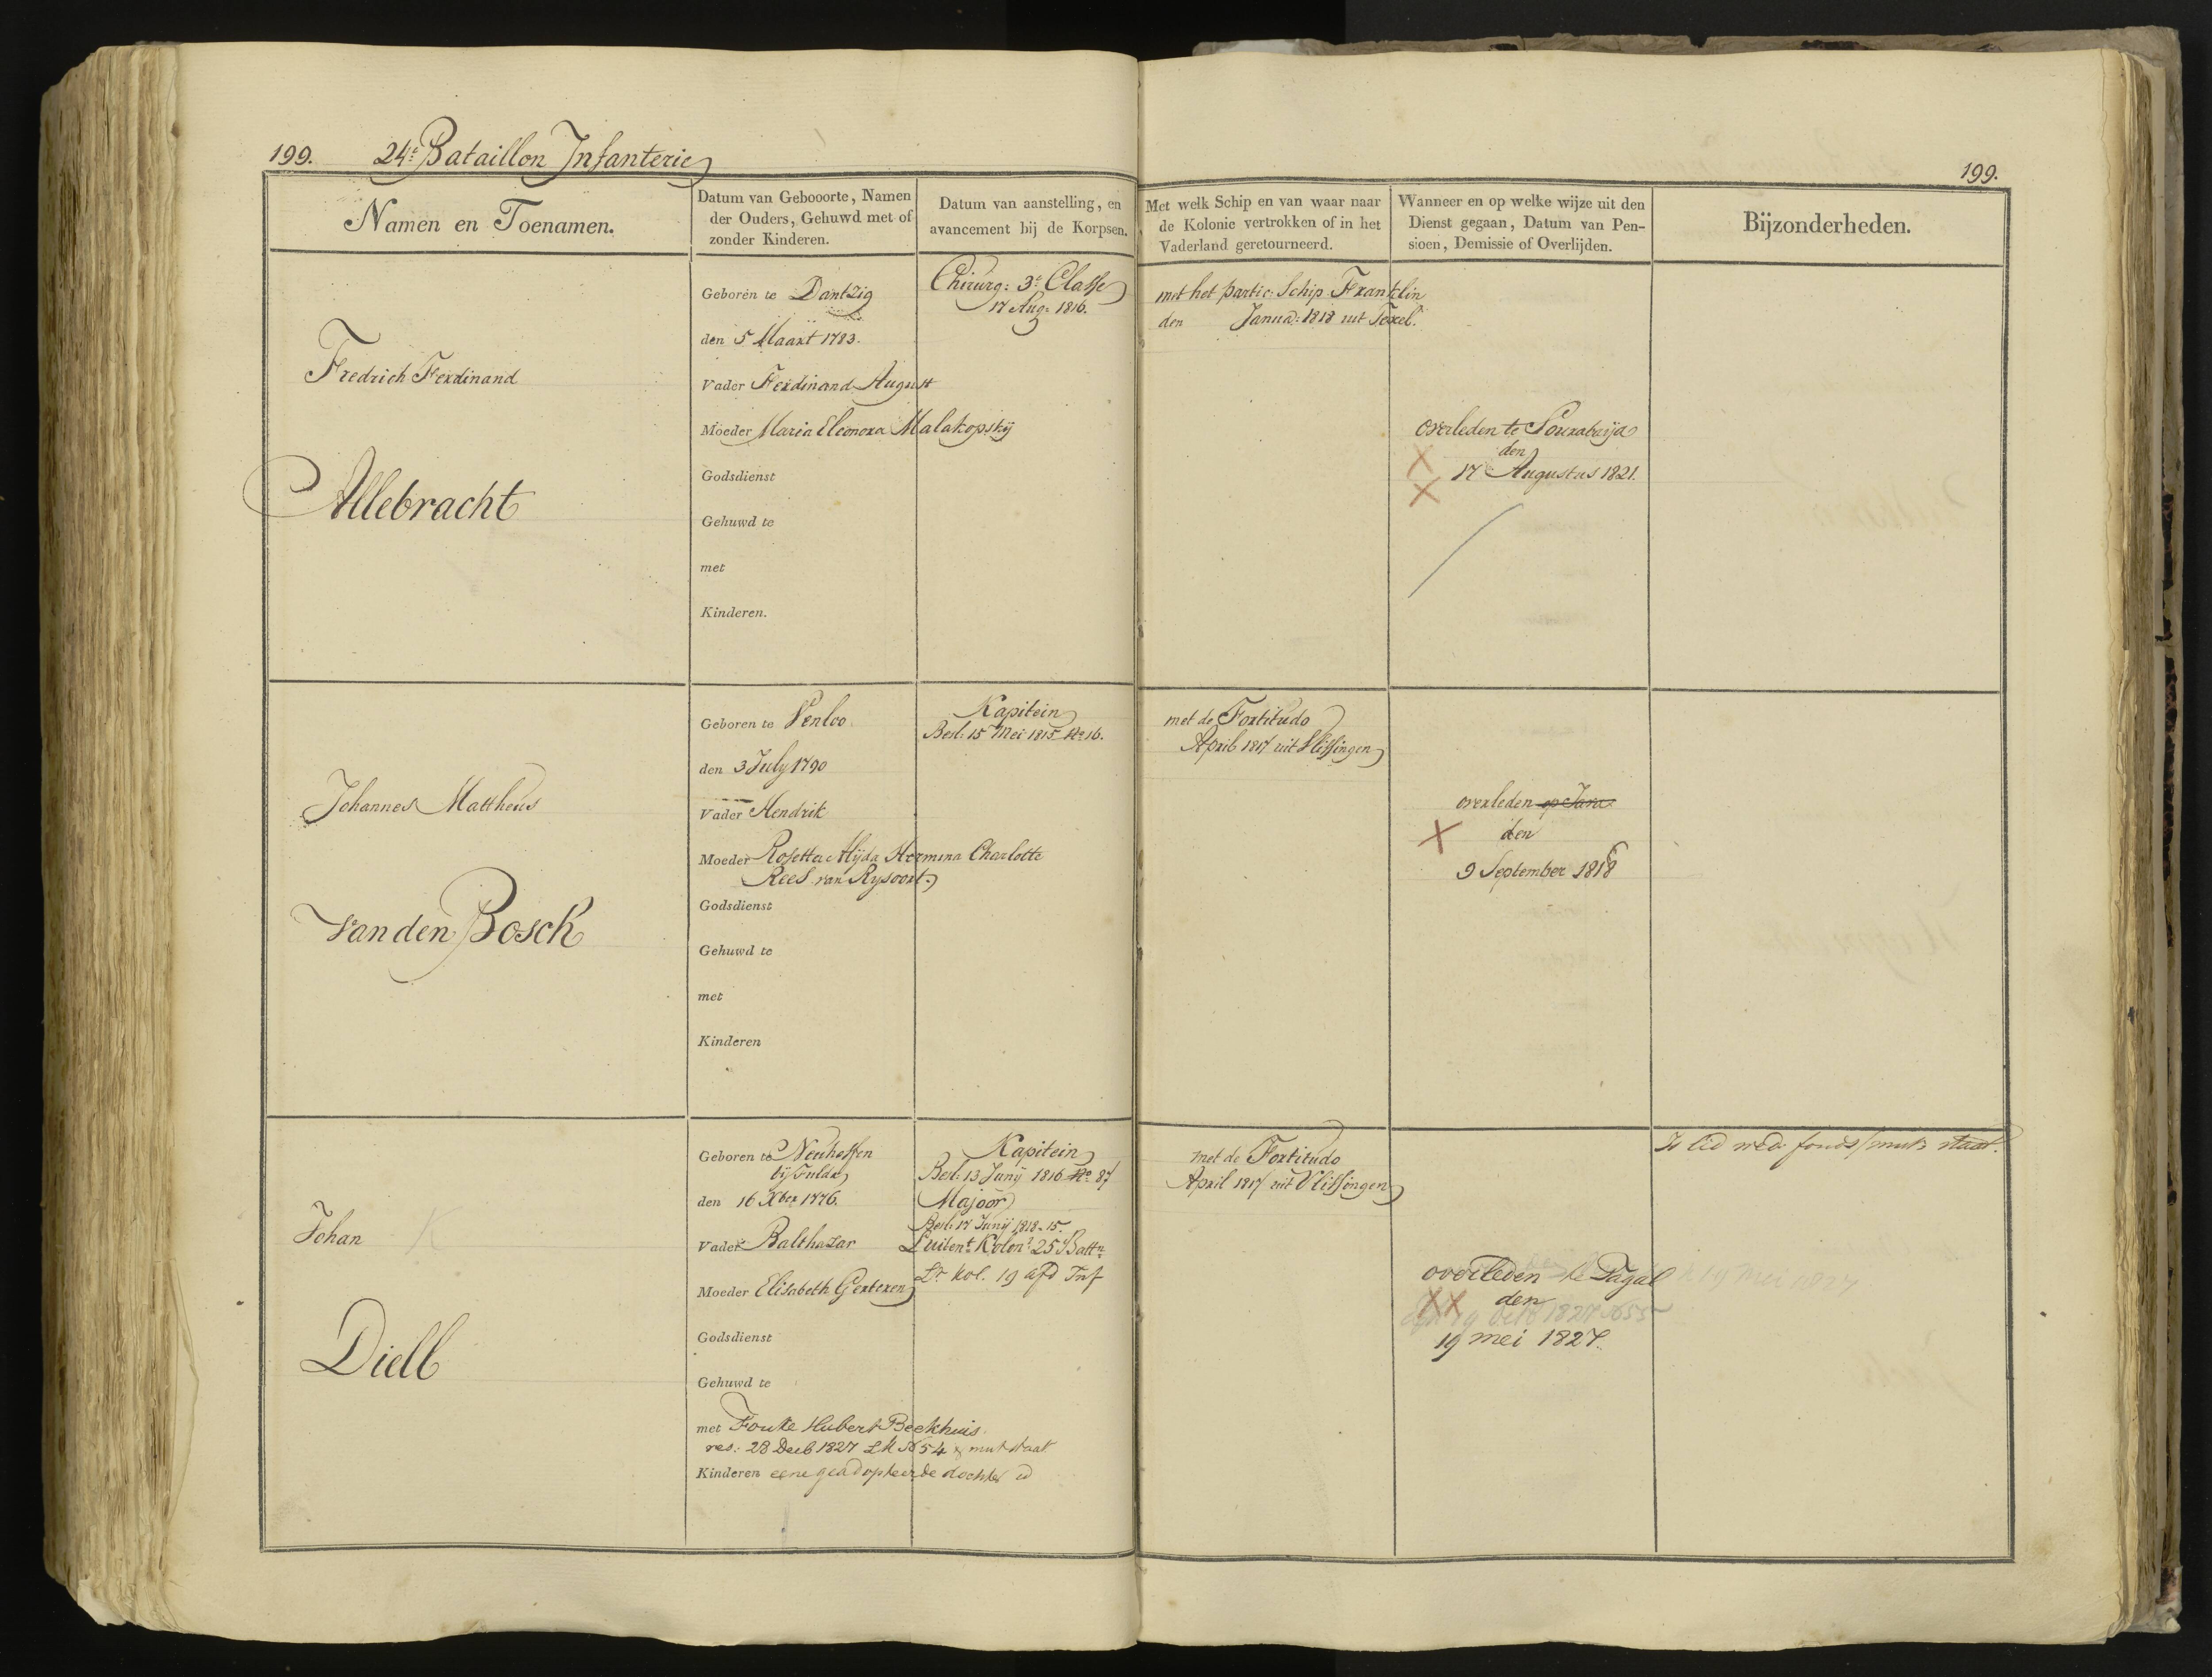 199. 24e Bataillon Infanterie
199.
Namen en Toenamen.
Datum van Gebooorte, Namen
der Ouders, Gehuwd met of
zonder Kinderen.
Datum van aanstelling, en
avancement bij de Korpsen.
Met welk Schip en van waar naar
de Kolonie vertrokken of in het
Vaderland geretourneerd.
Wanneer en op welke wijze uit den
Dienst gegaan, Datum van Pen-
sioen, Demissie of Overlijden.
Bijzonderheden.
Fredrich Ferdinand
Allebracht
Geboren te Dantzig
den 5 Maart 1783.
Vader Ferdinand August
Moeder Maria Eleonora Malakopskij
Godsdienst
Gehuwd te
met
Kinderen.
Chirurg: 3e Classe
17 Aug: 1816.
met het partic: Schip Franklin
den Janua: 1818 uit Texel.
overleden te Sourabaija
den
17 Augustus 1821.
Johannes Mattheus
Van den Bosch
Geboren te Venloo
den 3 July 1790
Vader Hendrik
Moeder Rosetta Alijda Hermina Charlotte
Rees van Rysoort.
Godsdienst
Gehuwd te
met
Kinderen
Kapitein
Besl: 15 Mei 1815 No 16.
met de Fortitudo
April 1817 uit Vlissingen
overleden op Java
den
9 September 1818
Johan
Diell
Geboren te Neuhessen
bij Fulda
den 16 Xber 1776.
Vader Balthazar
Moeder Elisabeth Gerteren
Godsdienst
Gehuwd te
met Fouke Hubert Beekhuis.
res: 28 Decb 1827 LK No 54 & mut staat
Kinderen eene geadopteerde dochter id
Kapitein
Besl: 13 Junij 1816 No 87
Majoor
Besl: 17 Junij 1818. 15.
Luitent Kolonl 25e Battn
Lt Kol. 19 afd Inf
met de Fortitudo
April 1817 uit Vlissingen
overleden te Tagal
den
19 mei 1827.
19 Mei 1827
Is lid wed: fonds / mut: staat.